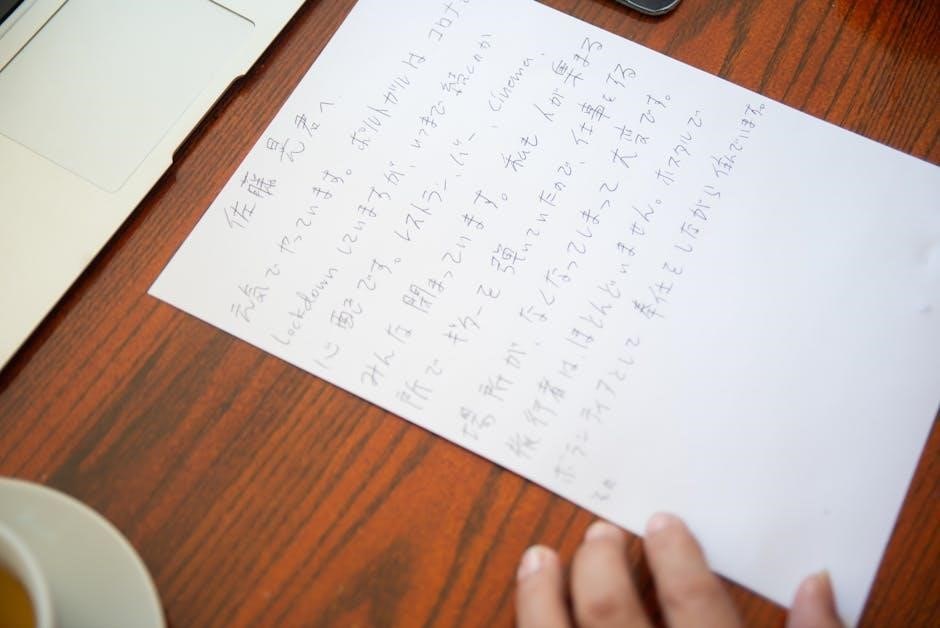 佐藤 晃君へ
元気でやっています。 ポルトガルは コロナで
Lockdown していますが、いつまで 続くのか
心配です。レストラン、バー、Cinema、
みんな 閉まっています。 私も 人が 集まる
所で、ギターを 弾いていたので、仕事をする
場所が、なくなってしまって 大変です。
旅行者は、ほとんどいません。ホスタルで
ボランティアとして 奉仕をしながら 住んでいます。